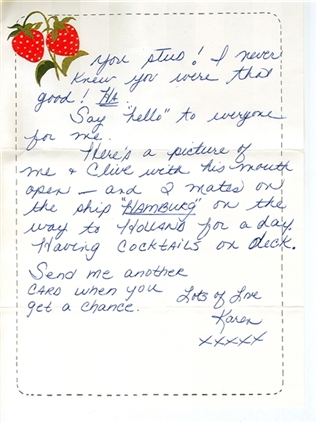 you stud! I never
knew you were that
good! Ha.
Say "hello" to everyone
for me.
There's a picture of
me & Clive with his mouth
open — and 2 mates on
the ship "HAMBURG" on the
way to HOLLAND for a day.
Having COCKTAILS on deck.
Send me another
CARD when you
get a chance.
Lots of Love
Karen
xxxxx